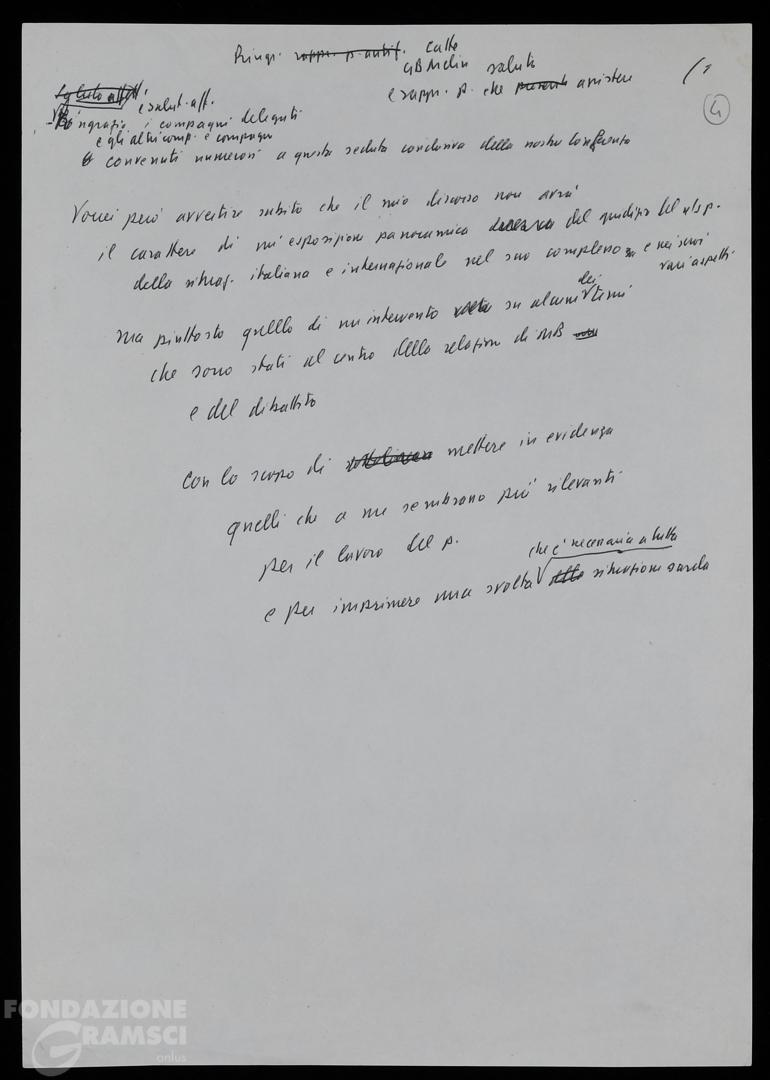 Ringr. rappr. p. antif. Calle
GB Melis saluti
e rappr. p. che assistere
(4)
e salut. aff.
Ringrazio i compagni delegati
e gli altri comp. e compagne
convenuti numerosi a questa seduta conclusiva della nostra Conferenza
Vorrei però avvertire subito che il mio discorso non avrà
il carattere di un'esposizione panoramica del giudizio del ns p.
della situaz. italiana e internazionale nel suo complesso e nei suoi
vari aspetti.
ma piuttosto quello di un intervento su alcuni dei temi
che sono stati al centro della relazione di MB
e del dibattito
con lo scopo di mettere in evidenza
quelli che a me sembrano più rilevanti
per il lavoro del p.
che è necessaria a tutta
e per imprimere una svolta situazione sarda
FONDAZIONE
GRAMSCI
onlus